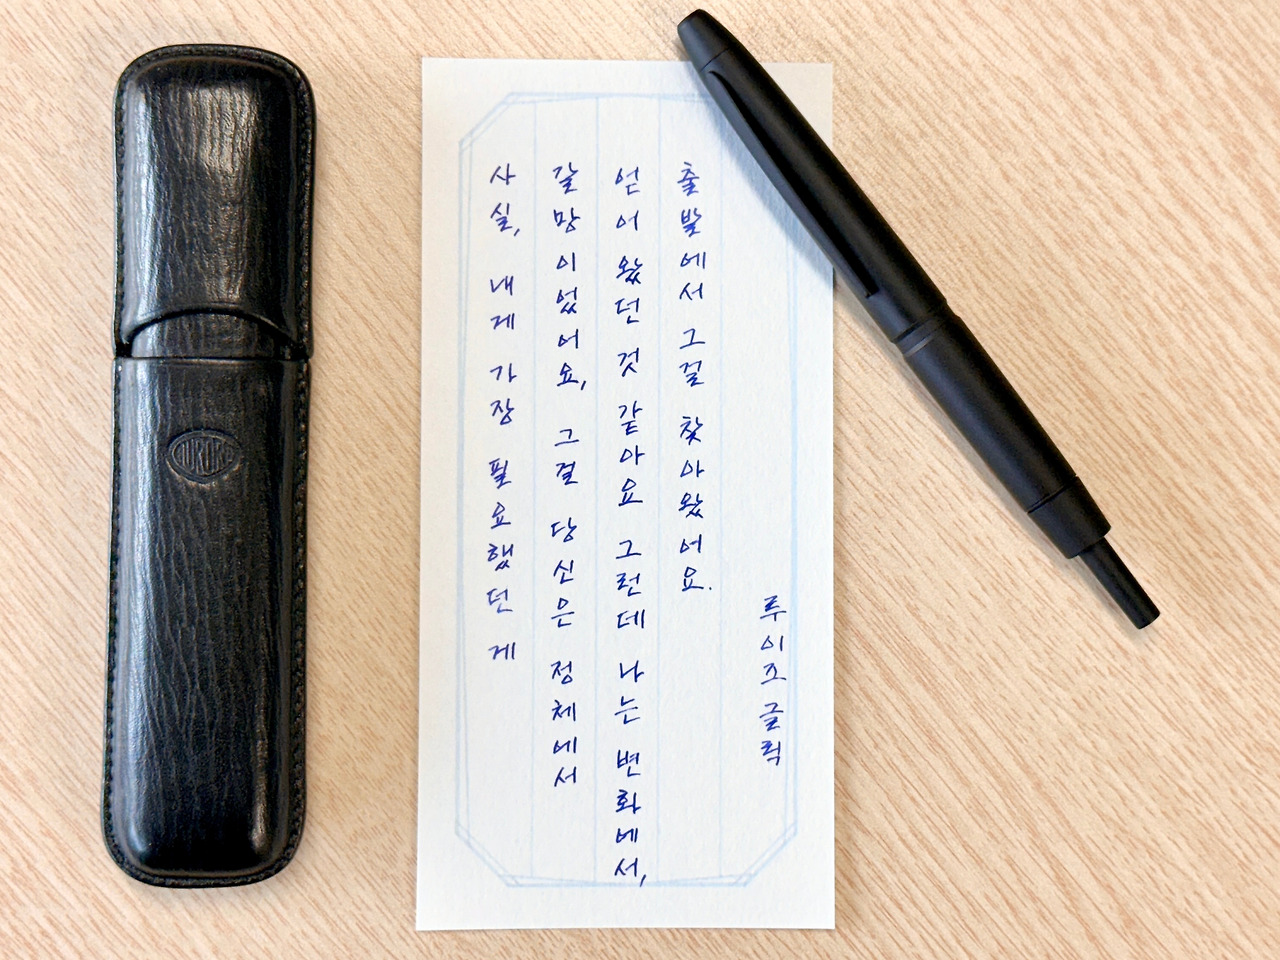 사실, 내게 가장 필요했던 게
갈망이었어요, 그걸 당신은 정체에서
얻어 왔던 것 같아요 그런데 나는 변화에서,
출발에서 그걸 찾아왔어요.
루이즈 글릭
AURORA